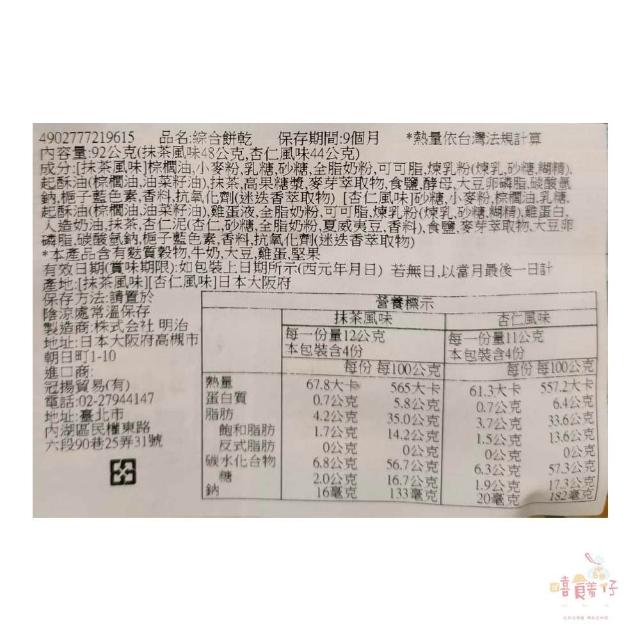 4902777219615 品名:綜合餅乾 保存期間:9個月 *熱量依台灣法規計算
內容量:92公克(抹茶風味48公克,杏仁風味44公克)
成分:[抹茶風味]棕櫚油,小麥粉,乳糖,砂糖,全脂奶粉,可可脂,煉乳粉(煉乳,砂糖,糊精),
起酥油(棕櫚油,油菜籽油),抹茶,高果糖漿,麥芽萃取物,食鹽,酵母,大豆卵磷脂,碳酸氫
鈉,梔子藍色素,香料,抗氧化劑(迷迭香萃取物) [杏仁風味]砂糖,小麥粉,棕櫚油,乳糖,
起酥油(棕櫚油,油菜籽油),雞蛋液,全脂奶粉,可可脂,煉乳粉(煉乳,砂糖,糊精),雞蛋白,
人造奶油,抹茶,杏仁泥(杏仁,砂糖,全脂奶粉,夏威夷豆,香料),食鹽,麥芽萃取物,大豆卵
磷脂,碳酸氫鈉,梔子藍色素,香料,抗氧化劑(迷迭香萃取物)
*本產品含有麩質穀物,牛奶,大豆,雞蛋,堅果
有效日期(賞味期限):如包裝上日期所示(西元年月日) 若無日,以當月最後一日計
產地:[抹茶風味][杏仁風味]日本大阪府
保存方法:請置於
陰涼處常溫保存
製造商:株式会社 明治
地址:日本大阪府高槻市
朝日町1-10
進口商:
冠揚貿易(有)
電話:02-27944147
地址:臺北市
內湖區民權東路
六段90巷25弄31號
營養標示
抹茶風味 杏仁風味
每一份量12公克 每一份量11公克
本包裝含4份 本包裝含4份
每份 每100公克 每份 每100公克
熱量 67.8大卡 565大卡 61.3大卡 557.2大卡
蛋白質 0.7公克 5.8公克 0.7公克 6.4公克
脂肪 4.2公克 35.0公克 3.7公克 33.6公克
飽和脂肪 1.7公克 14.2公克 1.5公克 13.6公克
反式脂肪 0公克 0公克 0公克 0公克
碳水化合物 6.8公克 56.7公克 6.3公克 57.3公克
糖 2.0公克 16.7公克 1.9公克 17.3公克
鈉 16毫克 133毫克 20毫克 182毫克